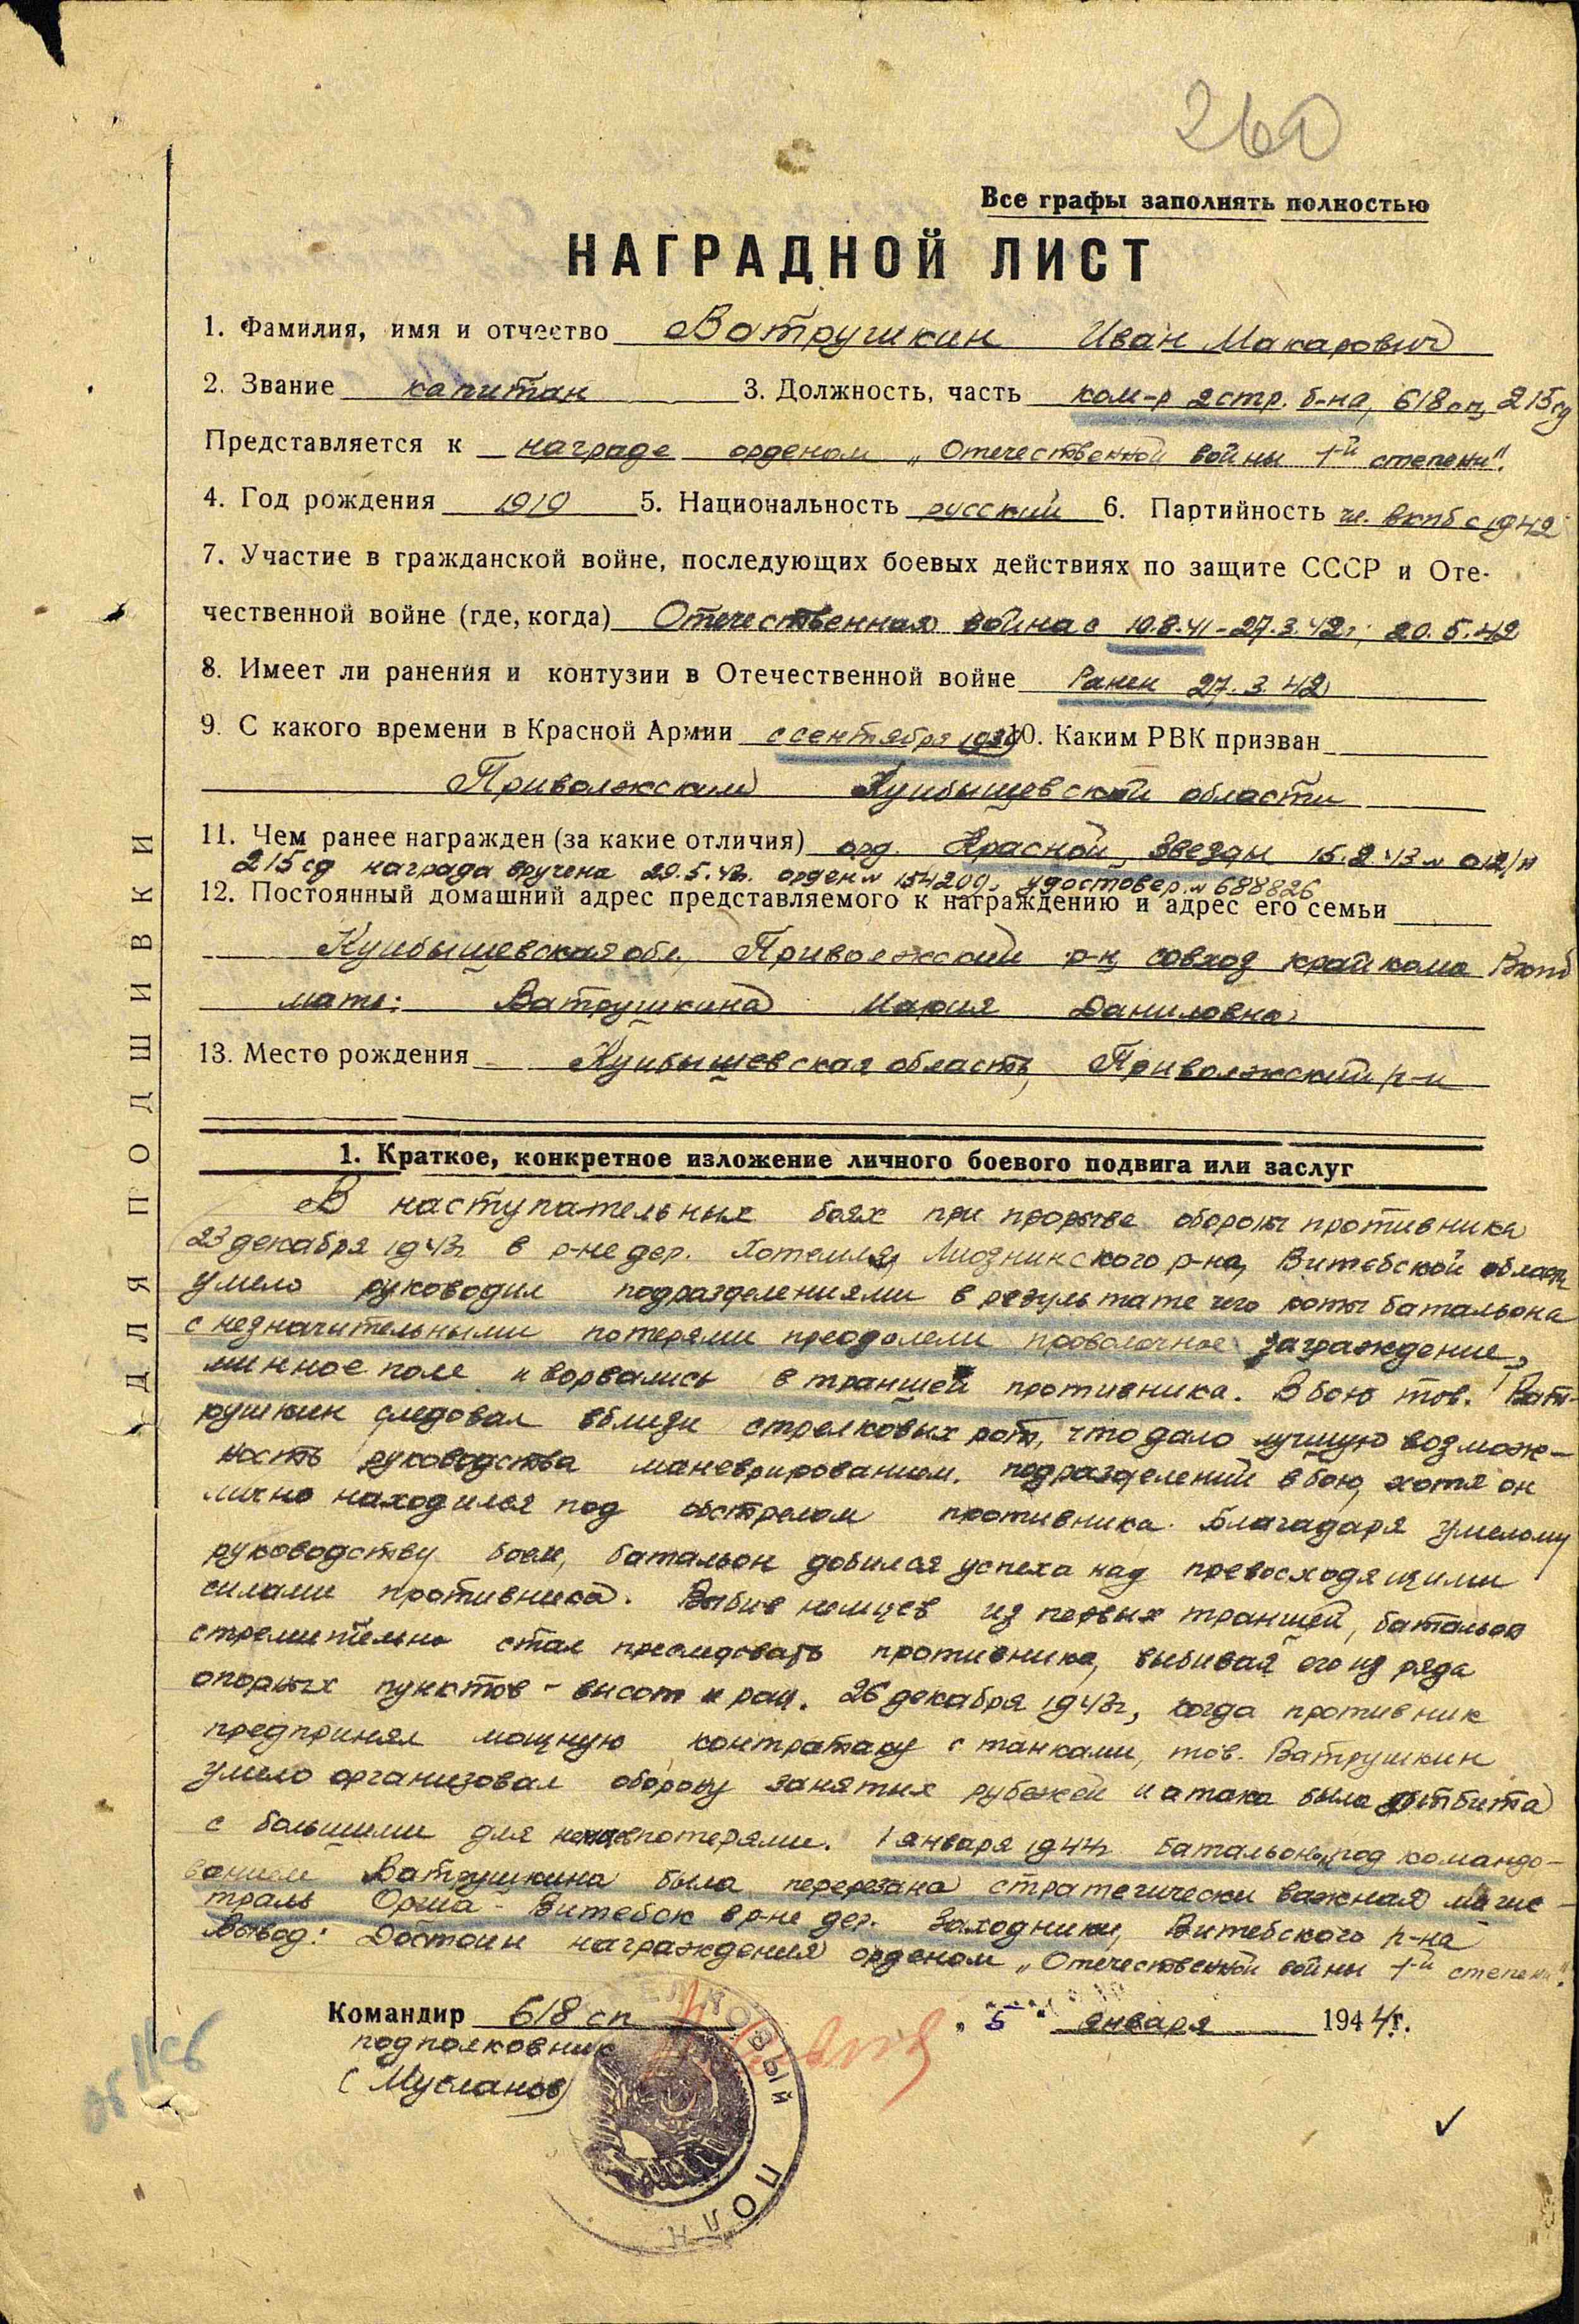 260
Все графы заполнять полностью
НАГРАДНОЙ ЛИСТ
1. Фамилия, имя и отчество Ватрушкин Иван Макарович
2. Звание капитан 3. Должность, часть ком-р 2 стр. б-на, 618 сп, 215 сд
Представляется к награде орденом „Отечественной войны 1-й степени".
4. Год рождения 1919 5. Национальность русский 6. Партийность чл. ВКПб с 1942
7. Участие в гражданской войне, последующих боевых действиях по защите СССР и Оте-
чественной войне (где, когда) Отечественная война с 10.8.41-27.3.42г, 20.5.42
8. Имеет ли ранения и контузии в Отечественной войне Ранен 27.3.42
9. С какого времени в Красной Армии с сентября 10. Каким РВК призван
Приволжским Куйбышевской области
11. Чем ранее награжден (за какие отличия) орд. Красной Звезды 15.2.43 № 012/н
215 сд награда вручена 29.5.43. орден № 154209. удостовер. № 688826
12. Постоянный домашний адрес представляемого к награждению и адрес его семьи
Куйбышевская обл, Приволжский р-н, совхоз крайкома ВКПб
мать: Ватрушкина Мария Даниловна
13. Место рождения Куйбышевская область, Приволжский р-н
1. Краткое, конкретное изложение личного боевого подвига или заслуг
В наступательных боях при прорыве обороны противника
23 декабря 1943г в р-не дер. Хотемля, Лиозникского р-на, Витебской области
умело руководил подразделениями в результате чего роты батальона
с незначительными потерями преодолели проволочное заграждение,
минное поле и ворвались в траншеи противника. В бою тов. Ват-
рушкин следовал вблизи стрелковых рот, что дало лучшую возмож-
ность руководства маневрированием подразделений в бою, хотя он
лично находился под обстрелом противника. Благадаря умелому
руководству боем, батальон добился успеха над превосходящими
силами противника. Выбив немцев из первых траншей, батальон
стремительно стал преследовать противника, выбивая его из ряда
опорных пунктов - высот и рощ. 26 декабря 1943г, когда противник
предпринял мощную контратаку с танками, тов. Ватрушкин
умело организовал оборону занятых рубежей и атака была отбита
с большими для немцев потерями. 1 января 1944г батальоном под командо-
ванием Ватрушкина была перерезана стратегически важная магис-
траль Орша - Витебск в р-не дер. Заходники, Витебского р-на
Вывод: Достоин награждения орденом „Отечественной войны 1-й степени".
Командир 618 сп „5" января 1944г.
подполковник
(Мусланов)
СТРЕЛКОВЫЙ ПОЛК
ДЛЯ ПОДШИВКИ